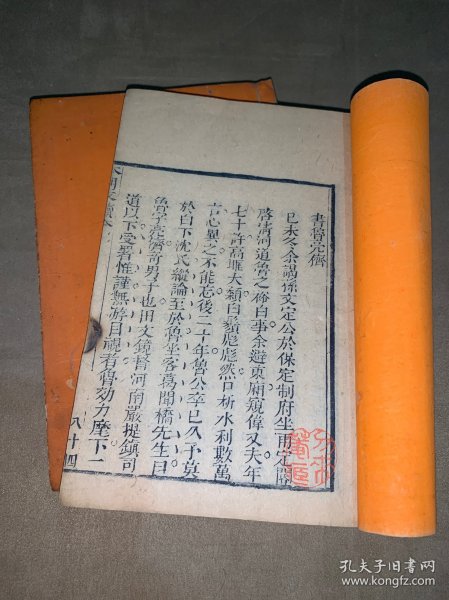 書魯亮儕
己未冬余謁孫文定公於保定制府坐甫定閽
啓清河道魯之裕白事余避東廂窺偉丈夫年
七十許高眶大顙白鬚彪彪然口析水利數萬
言心異之不能忘後二十年魯公卒已久予奠
於白下沈氏縱論至於魯坐客葛聞橋先生曰
魯字亮儕奇男子也田文鏡督河南嚴提鎮司
道以下受署惟謹無游目視者魯効力麾下一
八十四
孔夫子旧书网
www.kongfz.com